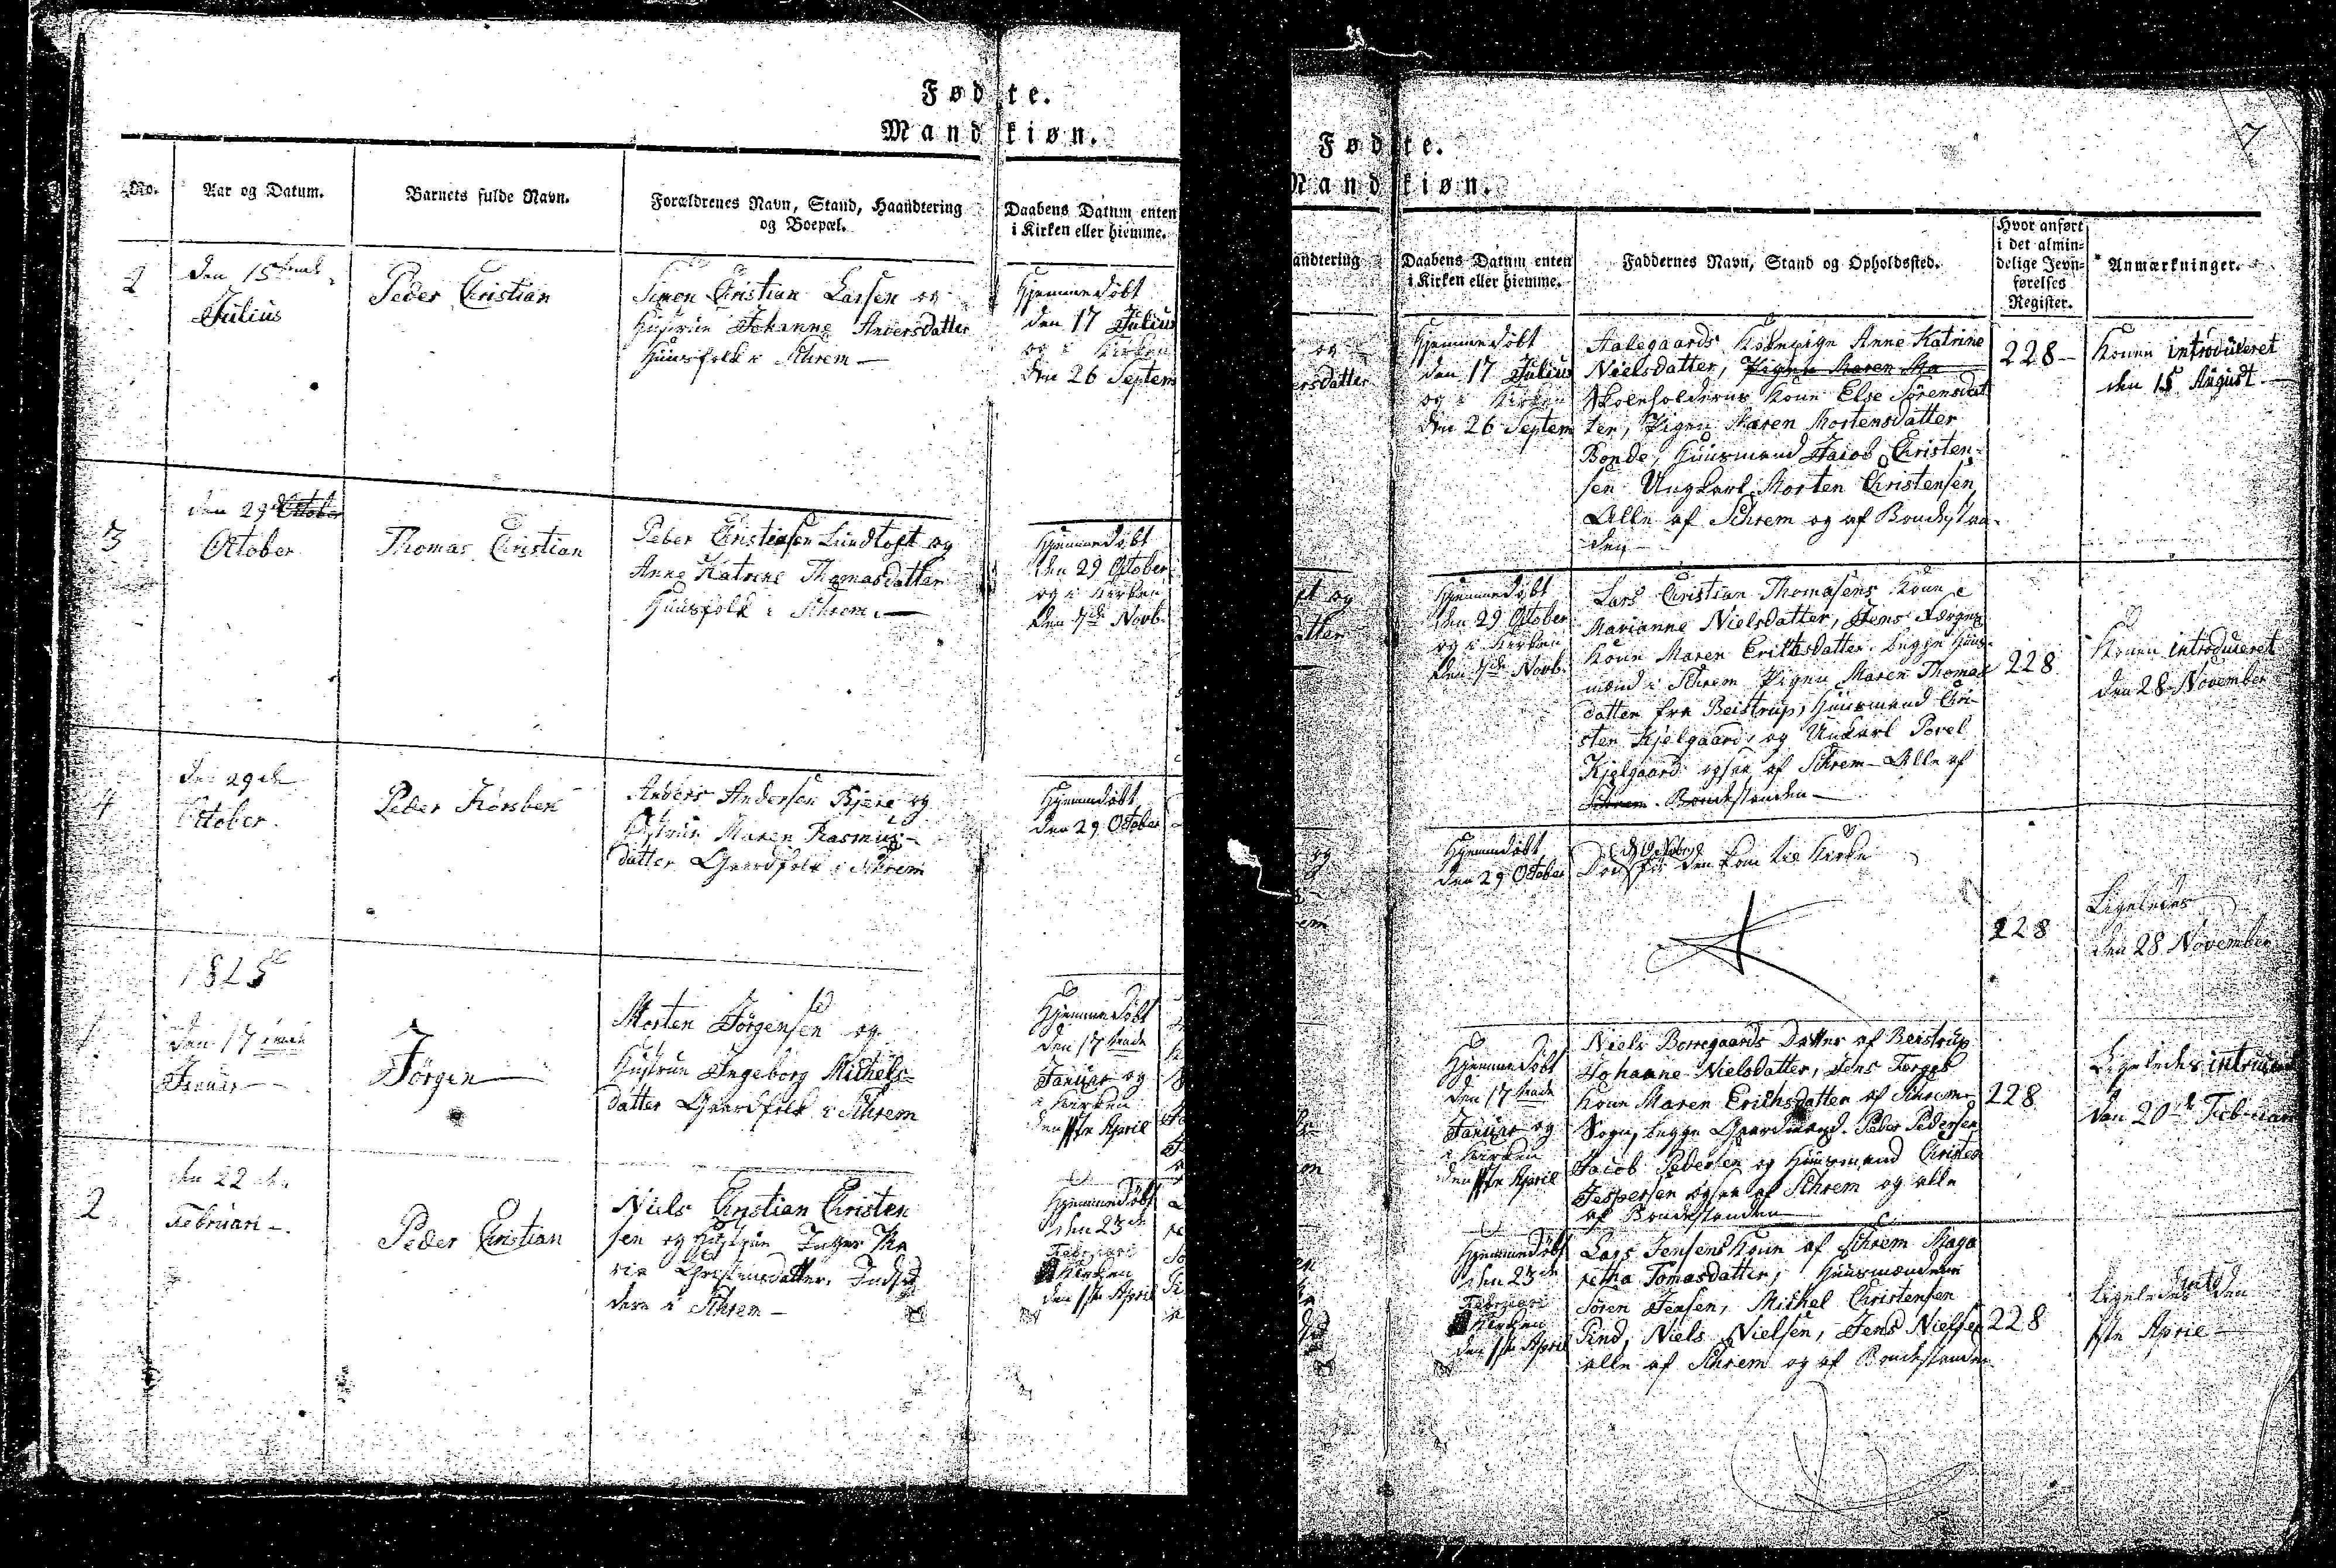 Fødte.
Mandkiøn.
No.
Aar og Datum.
Barnets fulde Navn.
Forældrenes Navn, Stand, Haandtering
og Boepæl.
Daabens Datum enten
i Kirken eller hiemme.
2
den 15
Julius
Peder Christian
Simon Christian Larsen og
Hustrue Johanne Andersdatter
Huusfolk i Schrem
Hjemmedøbt
den 17 Julius
og i Kirken
den 26 Septem
3
den 29 October
October
Thomas Christian
Peder Christensen Lundtoft og
Anne Katrine Thomasdatter
Huusfolk i Schrem
Hjemmedøbt
den 29 October
og i Kirken
den Novb.
4
den 29de
October
Peder
Anders Andersen Bjere og
Hustrue Maren Rasmus-
datter Gaardfolk i Schrem
Hjemmedøbt
den 29 October
1825
1
den 17
Januar
Jörgen
Morten Jörgensen og
Hustrue Ingeborg Michels-
datter Gaardfolk i Schrem
Hjemmedøbt
den 17
Januar og
i Kirken
den April
2
den 22
Februari
Peder Christian
Niels Christian Christen
sen og Hustrue Inger Ma
ria Christensdatter, Indsid
dere i Schrem
Hjemmedøbt
den 23de
Februari
i Kirken
den 1ste April
Fødte.
Mandkiøn.
7
andtering
Daabens Datum enten
i Kirken eller hiemme.
Faddernes Navn, Stand og Opholdssted.
Hvor anført
i det almin-
delige Jevn-
førelses
Register.
Anmærkninger.
og
ersdatter
Hjemmedøbt
den 17 Julius
og i Kirken
den 26 Septem
Aalegaards Anne Katrine
Nielsdatter, Pigen Maren Ma
Skoleholderens Kone Else Sörensdat
ter, Pigen Maren Mortensdatter
Bonde, Huusmand Jacob Christen-
sen Ungkarl Morten Christensen
Alle af Schrem og af Bondestan-
den
228
Konen introduceret
den 15 August
Hjemmedøbt
den 29 October
og i Kirken
den Novb.
Lars Christian Thomasens Kone
Marianne Nielsdatter, Jens
Kone Maren Erichsdatter begge Huus-
mænd i Schrem Pigen Maren Thomas
datter fra Beistrup, Huusmand Chri-
sten Kjelgaard, og Unkarl Povel
Kjelgaard ogsaa af Schrem Alle af
Schrem Bondestanden
228
Konen introduceret
den 28 November
Hjemmedøbt
den 29 October
Död før den kom til Kirke
228
Ligeledes
den 28 November
Hjemmedøbt
den 17
Januar og
i Kirken
den April
Niels Borregaards Datter af Beistrup
Johanne Nielsdatter, Jens
Kone Maren Erichsdatter af Schrem
Sogn, begge Gaardmænd. Peder Pedersen
Jacob Pedersen og Huusmand Christen
Jespersen ogsaa af Schrem og alle
af Bondestanden
228
Ligeledes
den 20de Februar
Hjemmedøbt
den 23de
Februari
i Kirken
den 1ste April
Lars Jensens Kone af Schrem Maga
retha Tomasdatter, Huusmændene
Sören Jensen, Michel Christensen
Pind, Niels Nielsen, Jens Nielsen
alle af Schrem og af Bondestanden
228
Ligeledes den
1ste April